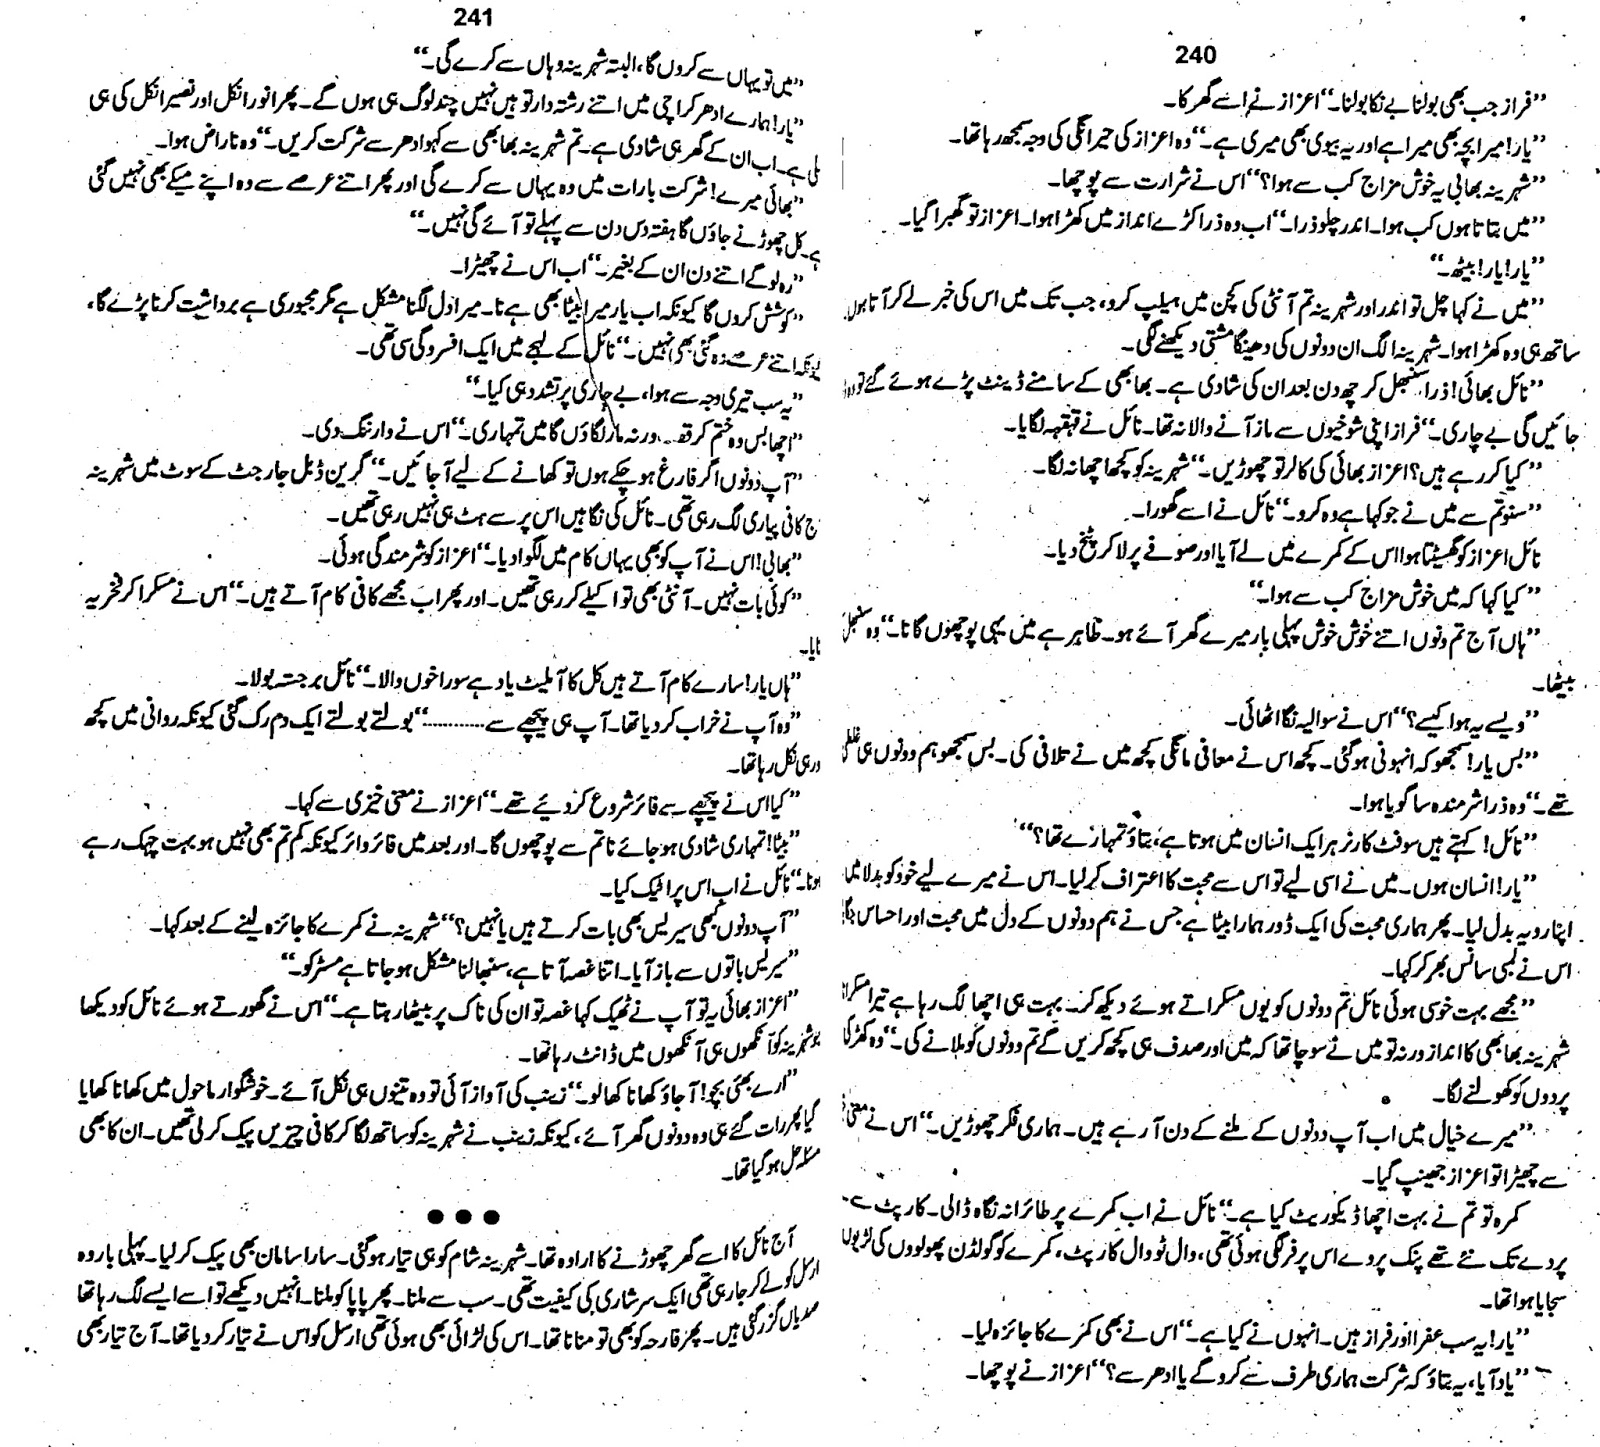 240
”فراز جب بھی بولنا بے تکا بولنا۔“ اعزاز نے اسے گھرکا۔
”یار! میرا بچہ بھی میرا ہے اور یہ بیوی بھی میری ہے۔“ وہ اعزاز کی حیرانگی کی وجہ سمجھ رہا تھا۔
”شہرینہ بھابی یہ خوش مزاج کب سے ہوا؟“ اس نے شرارت سے پوچھا۔
”میں بتاتا ہوں کب ہوا۔ اندر چلو ذرا۔“ اب وہ ذرا کڑے انداز میں کھڑا ہوا۔ اعزاز تو گھبرا گیا۔
”یار! یار! بیٹھ۔“
”میں نے کہا چل تو اندر اور شہرینہ تم آنٹی کی کچن میں ہیلپ کرو، جب تک میں اس کی خبر لے کر آتا ہوں
ساتھ ہی وہ کھڑا ہوا۔ شہرینہ الگ ان دونوں کی دھینگا مشتی دیکھنے لگی۔
”نائل بھائی! ذرا سنبھل کر چھ دن بعد ان کی شادی ہے۔ بھابھی کے سامنے ڈینٹ پڑے ہوئے گئے تو
جائیں گی بے چاری۔“ فراز اپنی شوخیوں سے باز آنے والا نہ تھا۔ نائل نے قہقہہ لگایا۔
”کیا کر رہے ہیں؟ اعزاز بھائی کی کالر تو چھوڑیں۔“ شہرینہ کو کچھ اچھا نہ لگا۔
”سنو تم سے میں نے جو کہا ہے وہ کرو۔“ نائل نے اسے گھورا۔
نائل اعزاز کو گھسیٹتا ہوا اس کے کمرے میں لے آیا اور صوفے پر لا کر پٹخ دیا۔
”کیا کہا کہ میں خوش مزاج کب سے ہوا۔“
”ہاں آج تم دونوں اتنے خوش خوش پہلی بار میرے گھر آئے ہو۔ ظاہر ہے میں یہی پوچھوں گا نا۔“ وہ سنبھل
بیٹھا۔
”ویسے یہ ہوا کیسے؟“ اس نے سوالیہ نگا اٹھائی۔
”بس یار! سمجھو کہ انہونی ہو گئی۔ کچھ اس نے معافی مانگی کچھ میں نے تلافی کی۔ بس سمجھو ہم دونوں ہی غلطی
تھے۔“ وہ ذرا شرمندہ سا گویا ہوا۔
”نائل! کہتے ہیں سوفٹ کارنر ہر ایک انسان میں ہوتا ہے، بتاؤ تمہارے تھا؟“
”یار! انسان ہوں۔ میں نے اسی لیے تو اس سے محبت کا اعتراف کر لیا۔ اس نے میرے لیے خود کو بدلا میں
اپنا رویہ بدل لیا۔ پھر ہماری محبت کی ایک ڈور ہمارا بیٹا ہے جس نے ہم دونوں کے دل میں محبت اور احساس
اس نے لمبی سانس بھر کر کہا۔
”مجھے بہت خوسی ہوئی نائل تم دونوں کو یوں مسکراتے ہوئے دیکھ کر۔ بہت ہی اچھا لگ رہا ہے تیرا مسکرانا
شہرینہ بھابھی کا انداز ورنہ تو میں نے سوچا تھا کہ میں اور صدف ہی کچھ کریں گے تم دونوں کو ملانے کی۔“ وہ کھڑکی
پردوں کو کھولنے لگا۔
”میرے خیال میں اب آپ دونوں کے ملنے کے دن آ رہے ہیں۔ ہماری فکر چھوڑیں۔“ اس نے معنی
سے چھیڑا تو اعزاز جھینپ گیا۔
کمرہ تو تم نے بہت اچھا ڈیکوریٹ کیا ہے۔“ نائل نے اب کمرے پر طائرانہ نگاہ ڈالی۔ کارپٹ سے
پردے تک نئے تھے پنک پردے اس پر فرنگی ہوئی تھی، وال ٹو وال کارپٹ، کمرے کو گولڈن پھولوں کی لڑیوں
سجایا ہوا تھا۔
”یار! یہ سب عفرا اور فراز ہیں۔ انہوں نے کیا ہے۔“ اس نے بھی کمرے کا جائزہ لیا۔
”یاد آیا، یہ بتاؤ کہ شرکت ہماری طرف سے کرو گے یا ادھر سے؟“ اعزاز نے پوچھا۔
241
”میں تو یہاں سے کروں گا، البتہ شہرینہ وہاں سے کرے گی۔“
”یار! ہمارے ادھر کراچی میں اتنے رشتہ دار تو ہیں نہیں چند لوگ ہی ہوں گے۔ پھر انور انکل اور نصیر انکل کی ہی
لی ہے۔ اب ان کے گھر ہی شادی ہے۔ تم شہرینہ بھابھی سے کہو ادھر سے شرکت کریں۔“ وہ ناراض ہوا۔
”بھائی میرے! شرکت بارات میں وہ یہاں سے کرے گی اور پھر اتنے عرصے سے وہ اپنے میکے بھی نہیں گئی
ہے۔ کل چھوڑنے جاؤں گا ہفتہ دس دن سے پہلے تو آئے گی نہیں۔“
”رہ لو گے اتنے دن ان کے بغیر۔“ اب اس نے چھیڑا۔
”کوشش کروں گا کیونکہ اب یار میرا بیٹا بھی ہے نا۔ میرا دل لگنا مشکل ہے مگر مجبوری ہے برداشت کرنا پڑے گا،
کیونکہ اتنے عرصے وہ گئی بھی نہیں۔“ نائل کے لہجے میں ایک افسردگی سی تھی۔
”یہ سب تیری وجہ سے ہوا، بے چاری پر تشدد ہی کیا۔“
”اچھا بس وہ ختم کر قصہ ورنہ مار لگاؤں گا میں تمہاری۔“ اس نے وارننگ دی۔
”آپ دونوں اگر فارغ ہو چکے ہوں تو کھانے کے لیے آ جائیں۔“ گرین ڈبل جارجٹ کے سوٹ میں شہرینہ
ج کافی پیاری لگ رہی تھی۔ نائل کی نگاہیں اس پر سے ہٹ ہی نہیں رہی تھیں۔
”بھابی! اس نے آپ کو بھی یہاں کام میں لگوا دیا۔“ اعزاز کو شرمندگی ہوئی۔
”کوئی بات نہیں۔ آنٹی بھی تو اکیلے کر رہی تھیں۔ اور پھر اب مجھے کافی کام آتے ہیں۔“ اس نے مسکرا کر فخریہ
تایا۔
”ہاں یار! سارے کام آتے ہیں کل کا آملیٹ یاد ہے سوراخوں والا۔“ نائل برجستہ بولا۔
”وہ آپ نے خراب کر دیا تھا۔ آپ ہی پیچھے سے...........“ بولتے بولتے ایک دم رک گئی کیونکہ روانی میں کچھ
ور ہی نکل رہا تھا۔
”کیا اس نے پیچھے سے فائر شروع کر دیئے تھے۔“ اعزاز نے معنی خیزی سے کہا۔
”بیٹا! تمہاری شادی ہو جائے نا تم سے پوچھوں گا۔ اور بعد میں فائر وائر کیونکہ کم تم بھی نہیں ہو بہت چہک رہے
ہونا۔“ نائل نے اب اس پر اٹیک کیا۔
”آپ دونوں کبھی سیریس بھی بات کرتے ہیں یا نہیں؟“ شہرینہ نے کمرے کا جائزہ لینے کے بعد کہا۔
”سیریس باتوں سے باز آیا۔ اتنا غصہ آتا ہے، سنبھالنا مشکل ہو جاتا ہے مسٹر کو۔“
”اعزاز بھائی یہ تو آپ نے ٹھیک کہا غصہ تو ان کی ناک پر بیٹھا رہتا ہے۔“ اس نے گھورتے ہوئے نائل کو دیکھا
جو شہرینہ کو آنکھوں ہی آنکھوں میں ڈانٹ رہا تھا۔
”ارے بھئی بچو! آ جاؤ کھانا کھا لو۔“ زینب کی آواز آئی تو وہ تینوں ہی نکل آئے۔ خوشگوار ماحول میں کھانا کھایا
گیا پھر رات گئے ہی وہ دونوں گھر آئے، کیونکہ زینب نے شہرینہ کو ساتھ لگا کر کافی چیزیں پیک کر لی تھیں۔ ان کا بھی
مسئلہ حل ہو گیا تھا۔
●●●
آج نائل کا اسے گھر چھوڑنے کا ارادہ تھا۔ شہرینہ شام کو ہی تیار ہو گئی۔ سارا سامان بھی پیک کر لیا۔ پہلی بار وہ
ارسل کو لے کر جا رہی تھی ایک سرشاری کی کیفیت تھی۔ سب سے ملنا۔ پھر پاپا کو ملنا۔ انہیں دیکھے تو اسے ایسے لگ رہا تھا
صدیاں گزر گئی ہیں۔ پھر فارحہ کو بھی تو منانا تھا۔ اس کی لڑائی بھی ہوئی تھی ارسل کو اس نے تیار کر دیا تھا۔ آج تیار بھی